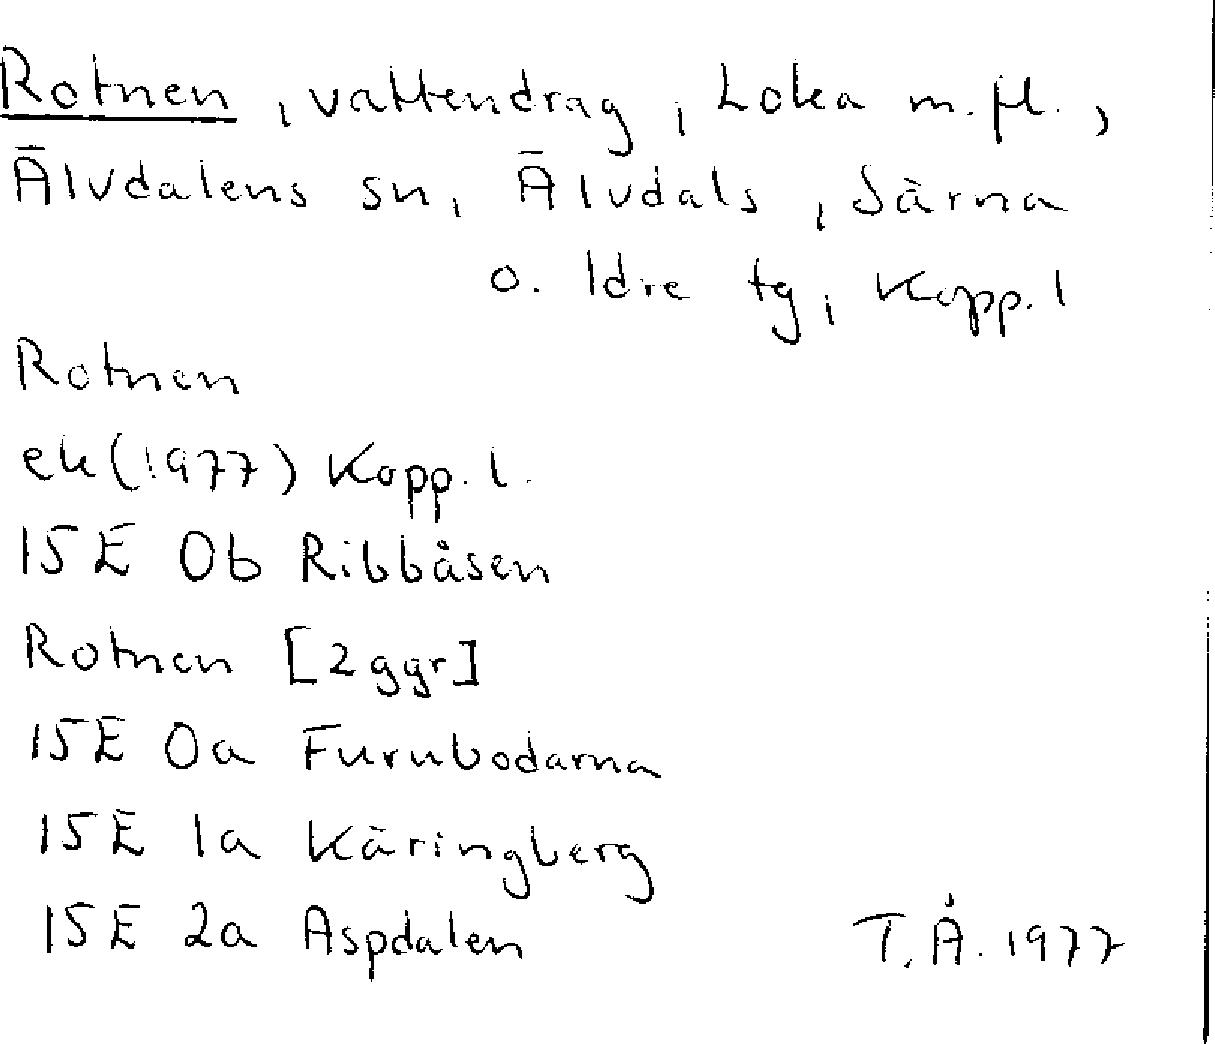 Rotnen, vattendrag, Loka m. fl.,
Älvdalens sn, Älvdals, Särna
o. Idre tg, Kopp. l
Rotnen
ek (1977) Kopp. l.
15E 0b Ribbåsen
Rotnen [2 ggr]
15E 0a Furubodarna
15E 1a Käringberg
15E 2a Aspdalen
T. Å. 1977